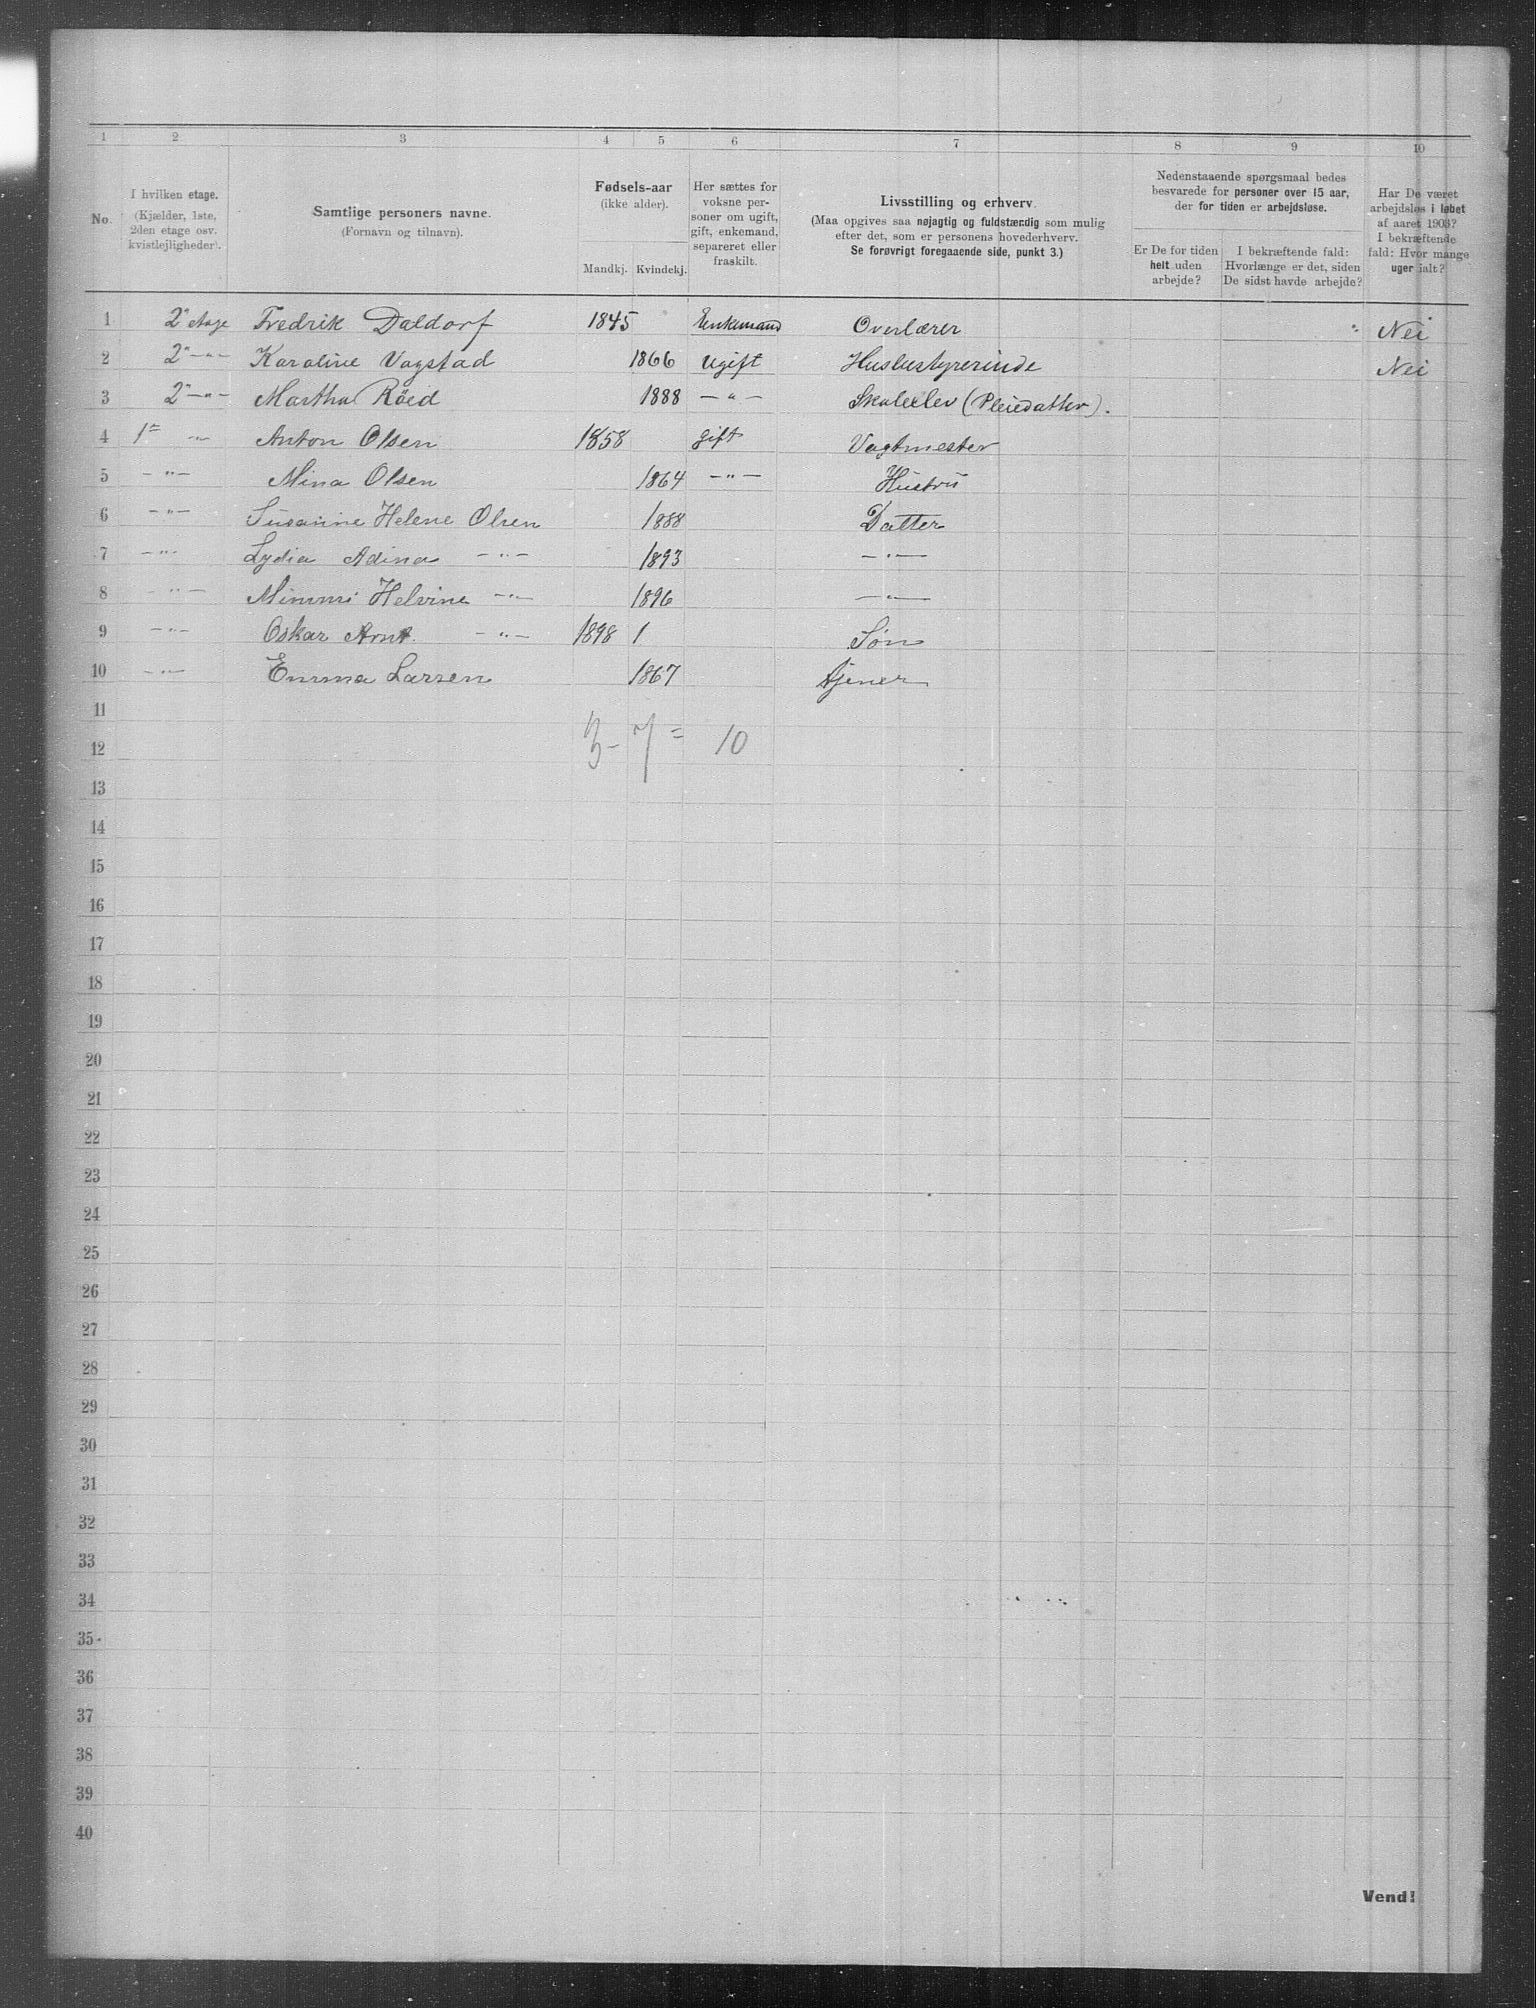 1 2 3 4 5 6 7 8 9 10
No.
I hvilken etage.
(Kjælder, 1ste,
2den etage osv.
kvistlejligheder).
Samtlige personers navne.
(Fornavn og tilnavn).
Fødsels-aar
(ikke alder).
Mandkj. Kvindekj.
Her sættes for
voksne per-
soner om ugift,
gift, enkemand,
separeret eller
fraskilt.
Livsstilling og erhverv.
(Maa opgives saa nøjagtig og fuldstændig som mulig
efter det, som er personens hovederhverv.
Se forøvrigt foregaaende side, punkt 3.)
Nedenstaaende spørgsmaal bedes
besvarede for personer over 15 aar,
der for tiden er arbejdsløse.
Er De for tiden
helt uden
arbejde?
I bekræftende fald:
Hvorlænge er det, siden
De sidst havde arbejde?
Har De været
arbejdsløs i løbet
af aaret 1903?
I bekræftende
fald: Hvor mange
uger ialt?
1 2" etage Fredrik Daldorf 1845 Enkemand Overlærer " Nei
2 2" —"— Karoline Vagstad 1866 Ugift Husbestyrerinde Nei
3 2 —"— Martha Röed 1888 —"— Skoleelev (Pleiedatter).
4 1= —"— Anton Olsen 1858 gift Vagtmester
5 —"— Mina Olsen 1864 —"— Hustru
6 —"— Susanne Helene Olsen 1888 Datter
7 —"— Lydia Adina —"— 1893 —"—
8 —"— Mimmi Helvine —"— 1896 —"—
9 —"— Oskar Arnt. —"— 1898 1 Søn
10 —"— Emma Larsen 1867 Tjener
11
12 3 - 7 = 10
13
14
15
16
17
18
19
20
21
22
23
24
25
26
27
28
29
30
31
32
33
34
35
36
37
38
39
40
Vend!